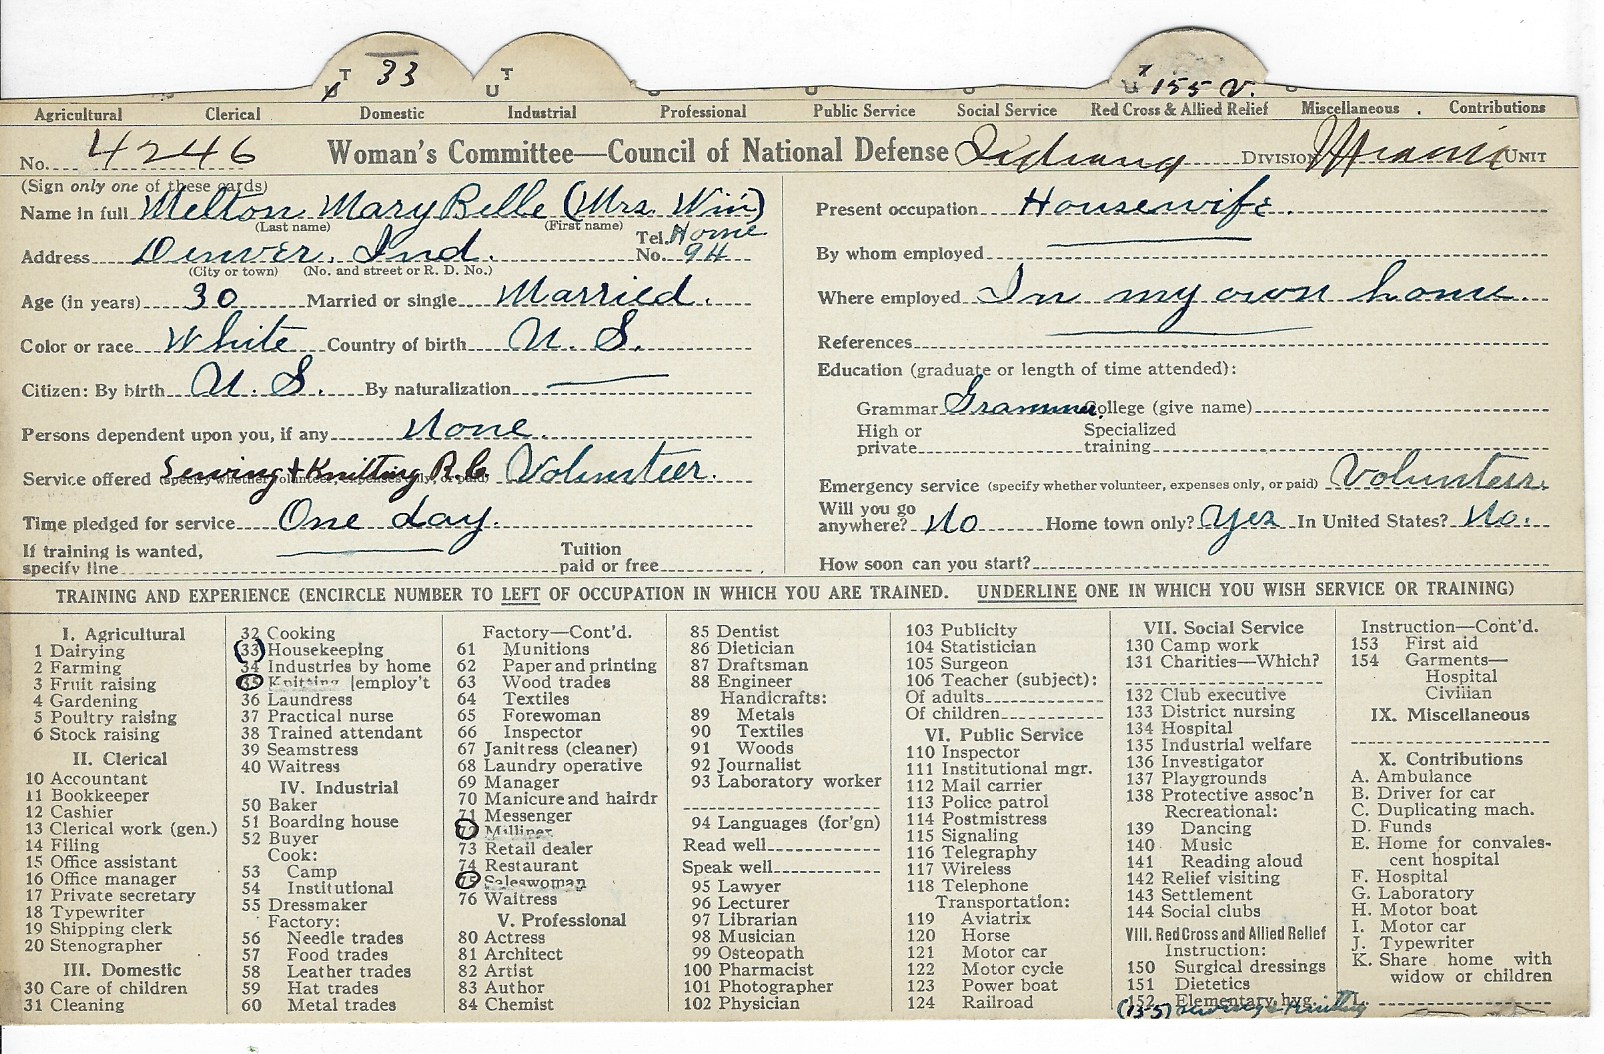 T 33 T 155 V.
U U U
Agricultural Clerical Domestic Industrial Professional Public Service Social Service Red Cross & Allied Relief Miscellaneous Contributions
No. 4246 Woman's Committee—Council of National Defense Indiana DIVISION Miami UNIT
(Sign only one of these cards)
Name in full Melton Mary Belle (Mrs. Win)
(Last name) (First name)
Address Denver, Ind. Tel. No. Home 94
(City or town) (No. and street or R. D. No.)
Age (in years) 30 Married or single Married.
Color or race White Country of birth U. S.
Citizen: By birth U. S. By naturalization
Persons dependent upon you, if any None.
Service offered (specify whether volunteer, expenses only, or paid) Sewing & Knitting R.C. Volunteer.
Time pledged for service One day.
If training is wanted, specify line Tuition paid or free
Present occupation Housewife.
By whom employed
Where employed In my own home
References
Education (graduate or length of time attended):
Grammar Grammar. College (give name)
High or private Specialized training
Emergency service (specify whether volunteer, expenses only, or paid) Volunteer.
Will you go anywhere? No Home town only? Yes In United States? No.
How soon can you start?
TRAINING AND EXPERIENCE (ENCIRCLE NUMBER TO LEFT OF OCCUPATION IN WHICH YOU ARE TRAINED. UNDERLINE ONE IN WHICH YOU WISH SERVICE OR TRAINING)
I. Agricultural
1 Dairying
2 Farming
3 Fruit raising
4 Gardening
5 Poultry raising
6 Stock raising
II. Clerical
10 Accountant
11 Bookkeeper
12 Cashier
13 Clerical work (gen.)
14 Filing
15 Office assistant
16 Office manager
17 Private secretary
18 Typewriter
19 Shipping clerk
20 Stenographer
III. Domestic
30 Care of children
31 Cleaning
32 Cooking
(33) Housekeeping
34 Industries by home
35 Knitting [employ't
36 Laundress
37 Practical nurse
38 Trained attendant
39 Seamstress
40 Waitress
IV. Industrial
50 Baker
51 Boarding house
52 Buyer
Cook:
53 Camp
54 Institutional
55 Dressmaker
Factory:
56 Needle trades
57 Food trades
58 Leather trades
59 Hat trades
60 Metal trades
Factory—Cont'd.
61 Munitions
62 Paper and printing
63 Wood trades
64 Textiles
65 Forewoman
66 Inspector
67 Janitress (cleaner)
68 Laundry operative
69 Manager
70 Manicure and hairdr
71 Messenger
72 Milliner
73 Retail dealer
74 Restaurant
75 Saleswoman
76 Waitress
V. Professional
80 Actress
81 Architect
82 Artist
83 Author
84 Chemist
85 Dentist
86 Dietician
87 Draftsman
88 Engineer
Handicrafts:
89 Metals
90 Textiles
91 Woods
92 Journalist
93 Laboratory worker
94 Languages (for'gn)
Read well
Speak well
95 Lawyer
96 Lecturer
97 Librarian
98 Musician
99 Osteopath
100 Pharmacist
101 Photographer
102 Physician
103 Publicity
104 Statistician
105 Surgeon
106 Teacher (subject):
Of adults
Of children
VI. Public Service
110 Inspector
111 Institutional mgr.
112 Mail carrier
113 Police patrol
114 Postmistress
115 Signaling
116 Telegraphy
117 Wireless
118 Telephone
Transportation:
119 Aviatrix
120 Horse
121 Motor car
122 Motor cycle
123 Power boat
124 Railroad
VII. Social Service
130 Camp work
131 Charities—Which?
132 Club executive
133 District nursing
134 Hospital
135 Industrial welfare
136 Investigator
137 Playgrounds
138 Protective assoc'n
Recreational:
139 Dancing
140 Music
141 Reading aloud
142 Relief visiting
143 Settlement
144 Social clubs
VIII. Red Cross and Allied Relief
Instruction:
150 Surgical dressings
151 Dietetics
152 Elementary hyg.
(155) Sewing & Knitting
Instruction—Cont'd.
153 First aid
154 Garments—
Hospital
Civilian
IX. Miscellaneous
X. Contributions
A. Ambulance
B. Driver for car
C. Duplicating mach.
D. Funds
E. Home for convales-
cent hospital
F. Hospital
G. Laboratory
H. Motor boat
I. Motor car
J. Typewriter
K. Share home with
widow or children
L.